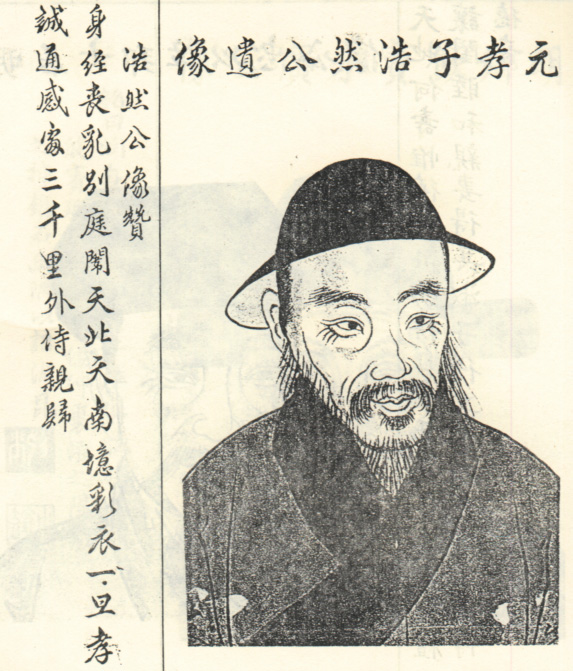 元孝子浩然公遺像
浩然公像贊
身經喪乱別庭闈天北天南憶彩衣一旦孝
誠通感處三千里外侍親歸